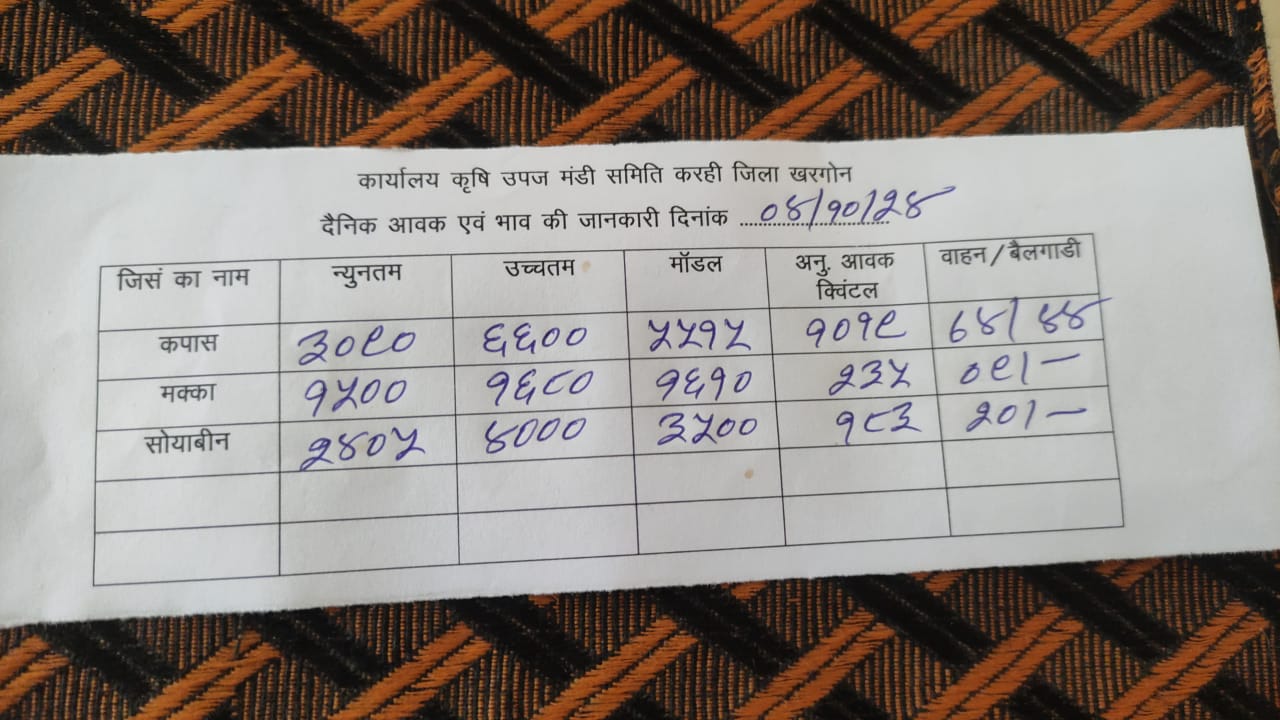 कार्यालय कृषि उपज मंडी समिति करही जिला खरगोन
दैनिक आवक एवं भाव की जानकारी दिनांक ०४/१०/२४
जिसं का नाम न्युनतम उच्चतम मॉडल अनु. आवक क्विंटल वाहन/बैलगाडी
कपास ३०९० ६६०० ५५१५ १०१९ ७४/४४
मक्का १५०० १६८० १६१० २३५ ०९/-
सोयाबीन २४०५ ४००० ३५०० १८३ २०/-